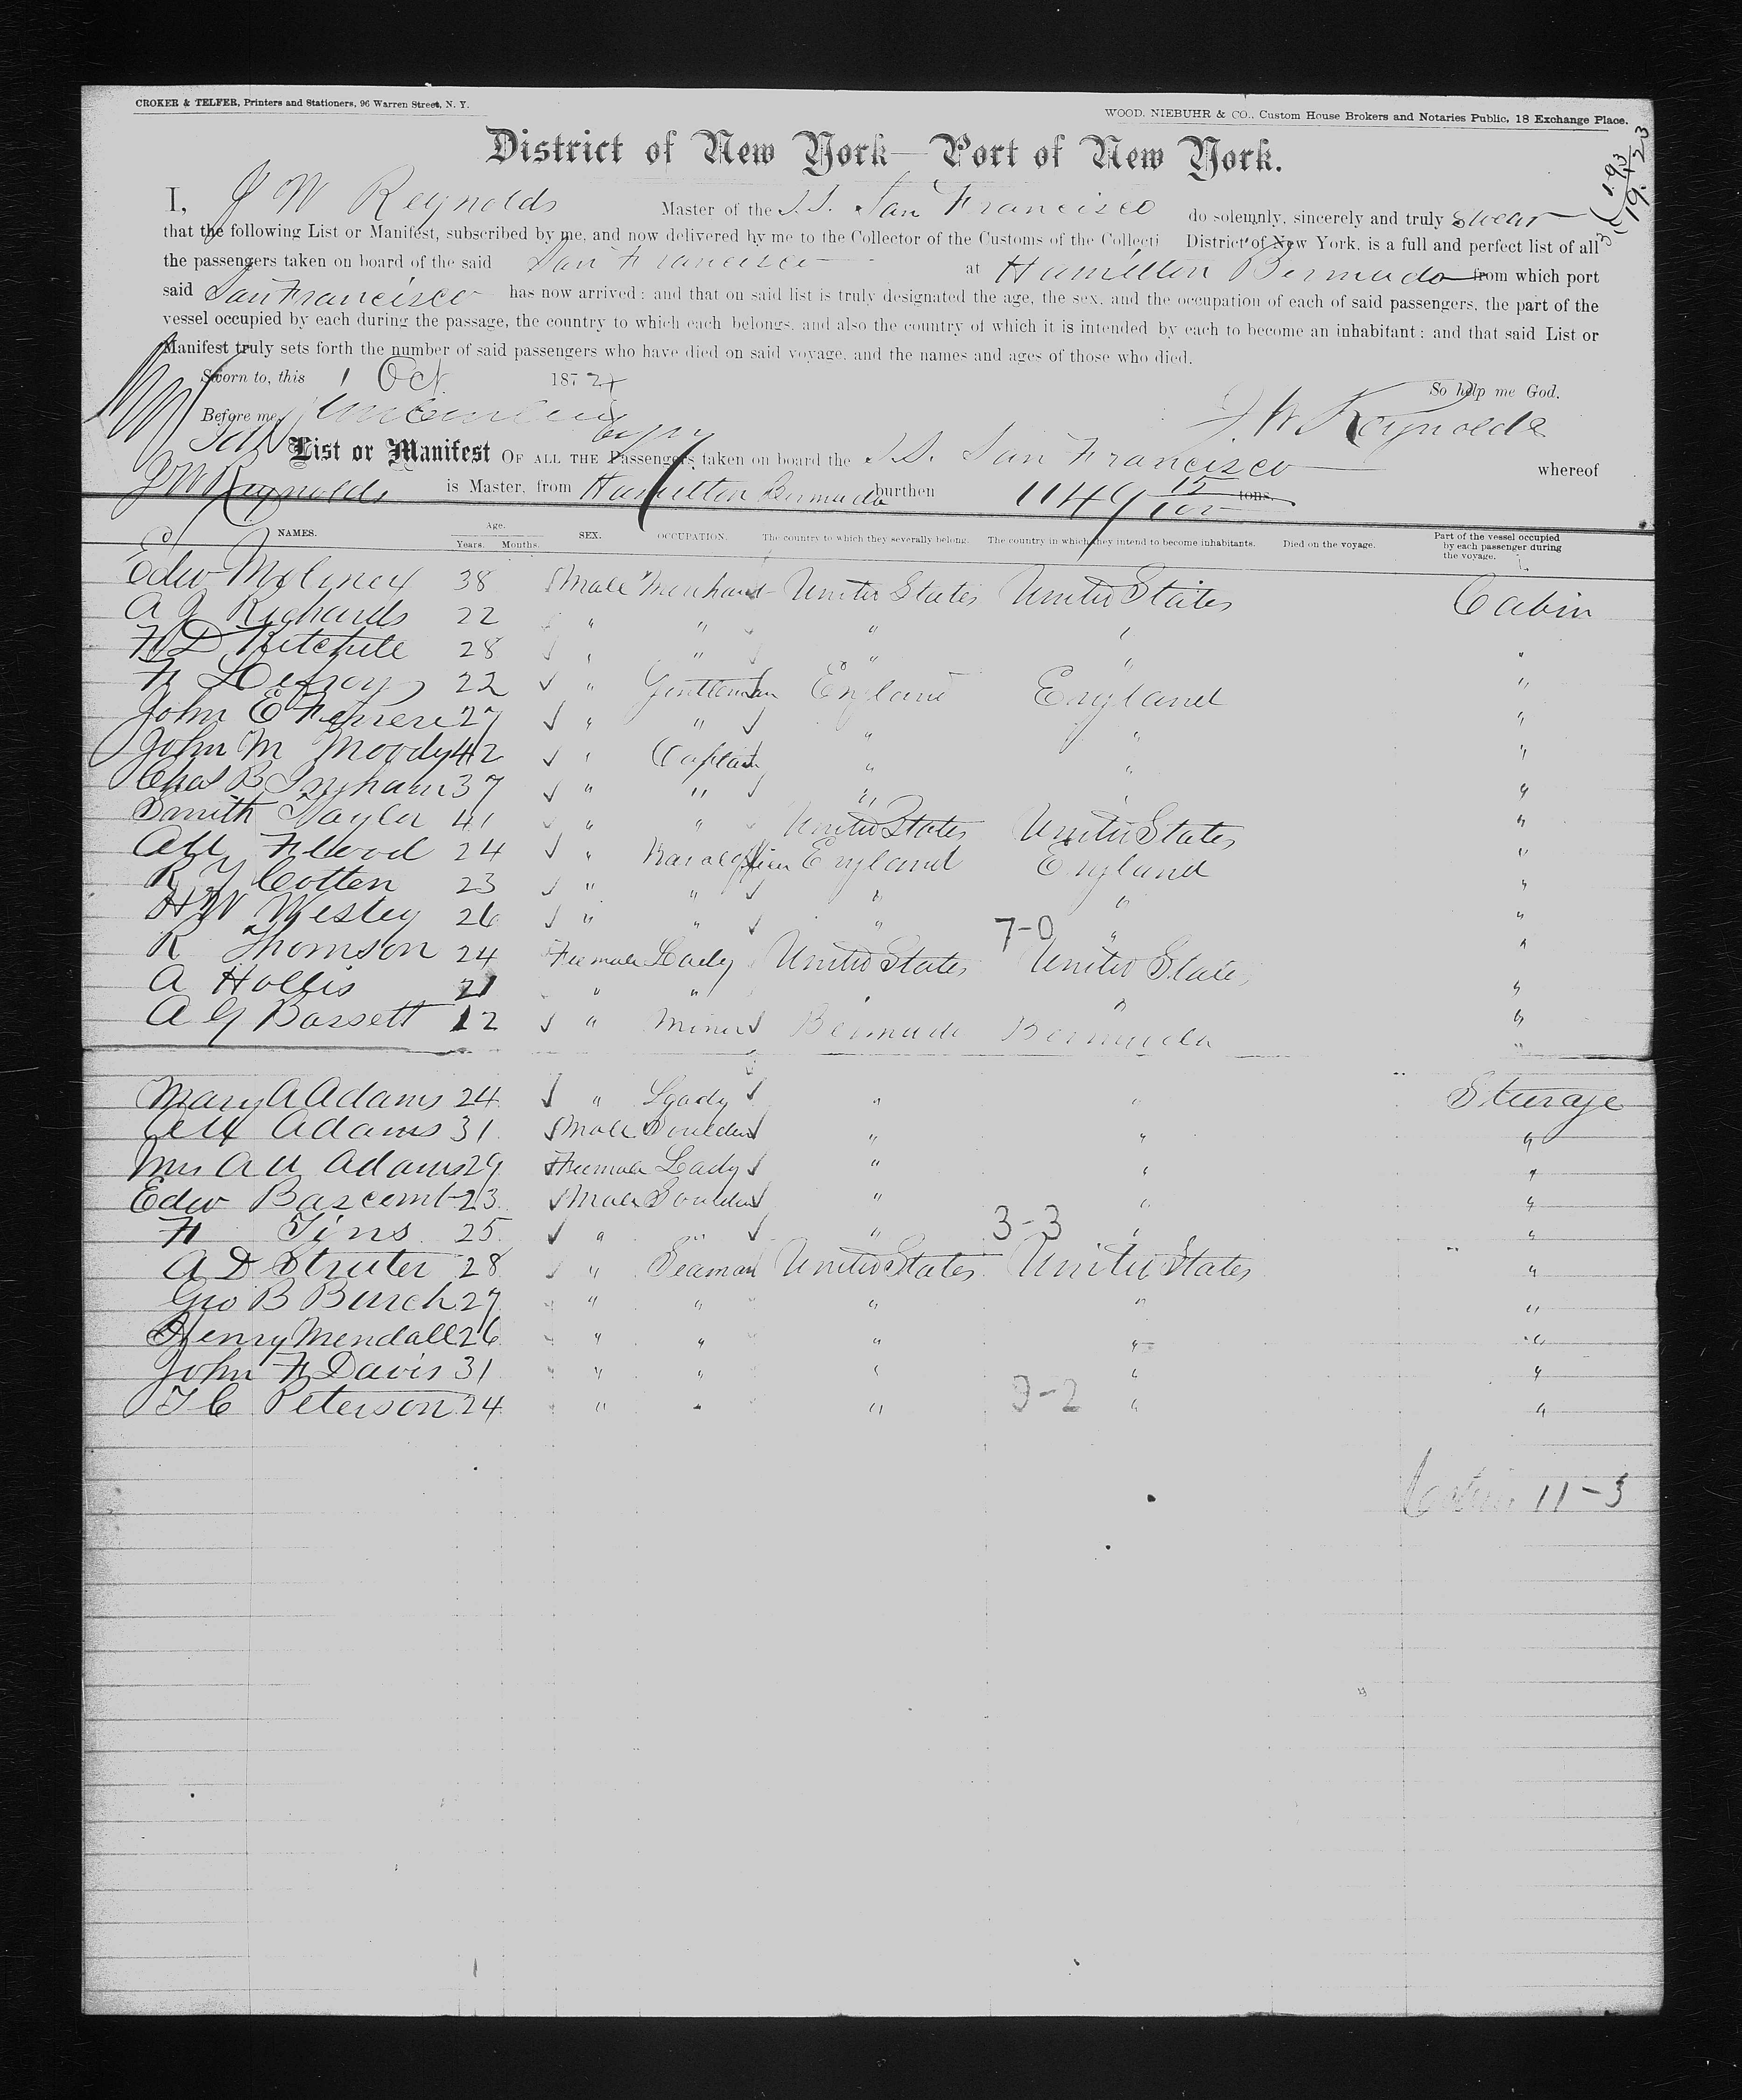 CROKER & TELFER, Printers and Stationers, 96 Warren Street, N. Y.
WOOD, NIEBUHR & CO., Custom House Brokers and Notaries Public, 18 Exchange Place.
District of New York—Port of New York.
I, J W Reynolds Master of the S.S. San Francisco do solemnly, sincerely and truly swear
that the following List or Manifest, subscribed by me, and now delivered by me to the Collector of the Customs of the Collecti District of New York, is a full and perfect list of all
the passengers taken on board of the said San Francisco at Hamilton Bermuda from which port
said San Francisco has now arrived: and that on said list is truly designated the age, the sex, and the occupation of each of said passengers, the part of the
vessel occupied by each during the passage, the country to which each belongs, and also the country of which it is intended by each to become an inhabitant: and that said List or
Manifest truly sets forth the number of said passengers who have died on said voyage, and the names and ages of those who died.
Sworn to, this 1 Oct 187
So help me God.
Before me,
J. W Reynolds
List or Manifest OF ALL THE Passengers taken on board the S.S. San Francisco whereof
J W Reynolds is Master, from Hamilton Bermuda burthen 1149 15/100 tons.
NAMES. Age. Years. Months. SEX. OCCUPATION. The country to which they severally belong. The country in which they intend to become inhabitants. Died on the voyage. Part of the vessel occupied by each passenger during the voyage.
Edw 38 Male Merchant United States United States Cabin
A J Richards 22 " " " "
28 " " " " "
F Lefroy 22 " Gentleman England England "
John E 27 " " " " "
John M Moody 42 " Captain " " "
Chas B Ingham 37 " " " "
Smith Taylor 41 " " United States United States "
24 " England England "
R Y Cotten 23 " " " " "
H W Wesley 26 " " " 7-0 " "
R Thomson 24 Feemale Lady United States United States "
A Hollis 21 " " " "
A G Bassett 12 " Minor Bermuda Bermuda "
Mary A Adams 24 " Lady " " Sturage
Adams 31 Male " " "
Mrs Adams 29 Feemale Lady " " "
Edw Bascomb 23 Male " " "
F Tins 25 " " " 3-3 " "
A D Struter 28 " Seaman United States United States "
Geo B Burch 27 " " " " "
Henry Mendall 26 " " " " "
John F Davis 31 " " " " "
T C Peterson 24 " " " 9-2 " "
Cabin 11-3